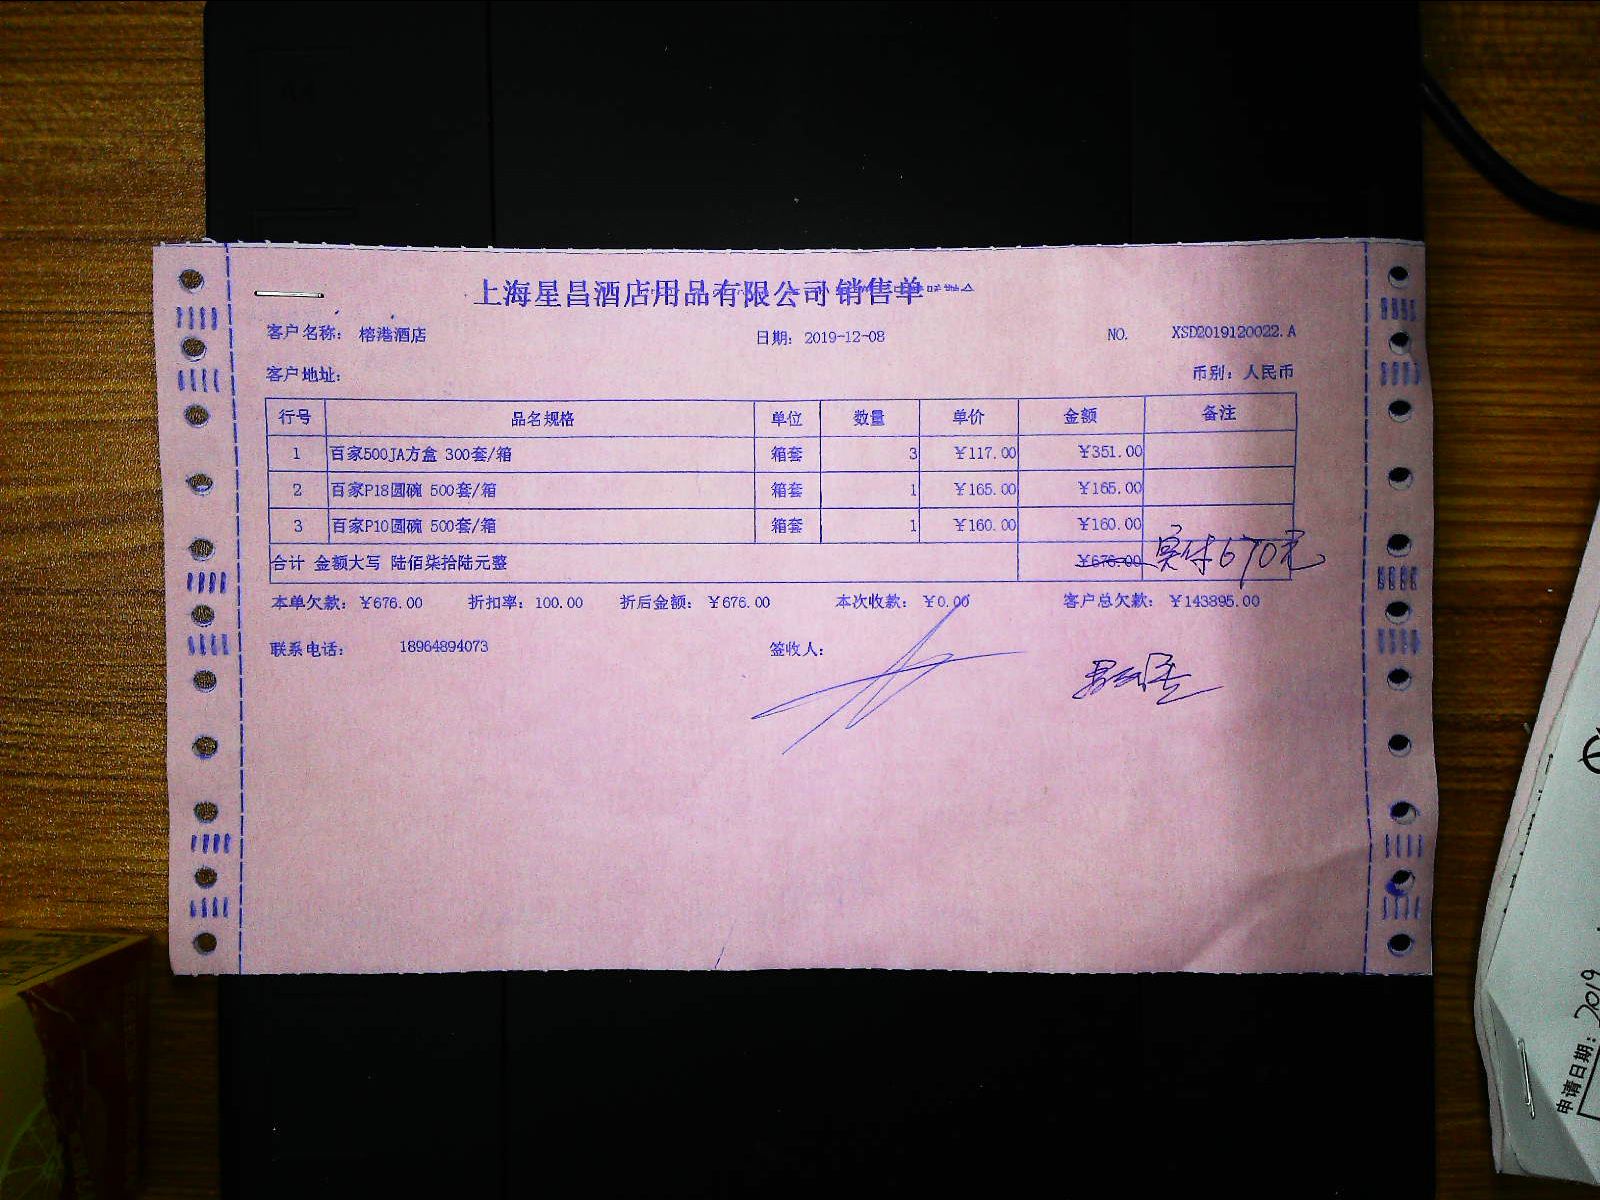 上海星昌酒店用品有限公司销售单
客户名称: 榕港酒店 日期: 2019-12-08 NO. XSD2019120022.A
客户地址: 币别: 人民币
行号 品名规格 单位 数量 单价 金额 备注
1 百家500JA方盒 300套/箱 箱套 3 ¥117.00 ¥351.00
2 百家P18圆碗 500套/箱 箱套 1 ¥165.00 ¥165.00
3 百家P10圆碗 500套/箱 箱套 1 ¥160.00 ¥160.00
合计 金额大写 陆佰柒拾陆元整 ¥676.00 实付670元
本单欠款: ¥676.00 折扣率: 100.00 折后金额: ¥676.00 本次收款: ¥0.00 客户总欠款: ¥143895.00
联系电话: 18964894073 签收人:
申请日期: 2019